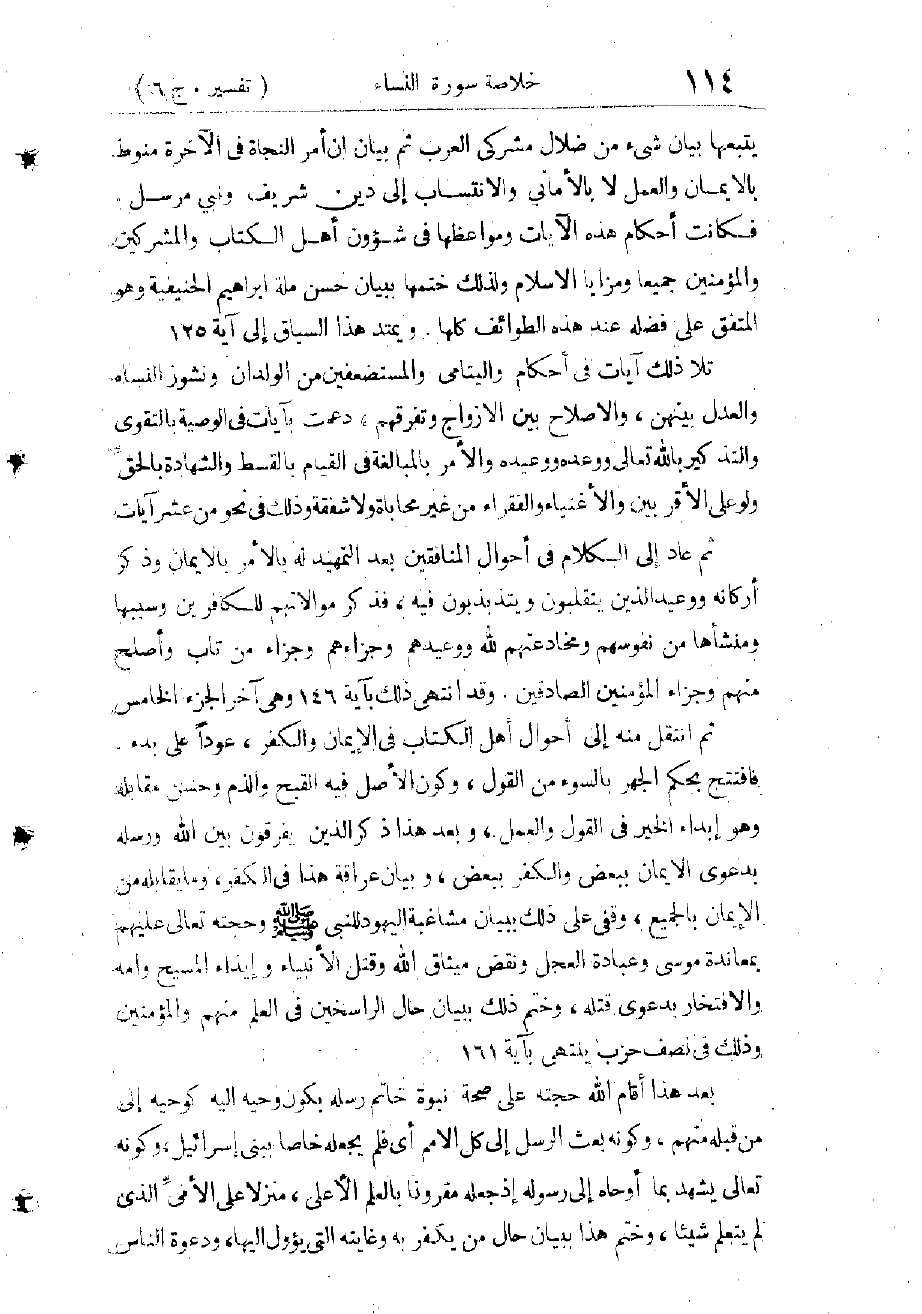 ١١٤ خلاصة سورة النساء ( تفسير ٠ ج ٦ )
يتبعها بيان شىء من ضلال مشركى العرب ثم بيان ان أمر النجاة فى الآخرة منوط
بالايمان والعمل لا بالأماني والانتساب إلى دين شريف ونبي مرسل .
فكانت أحكام هذه الآيات ومواعظها فى شؤون أهل الكتاب والمشركين
والمؤمنين جميعا ومزايا الاسلام ولذلك ختمها ببيان حسن ملة ابراهيم الحنيفية وهو
المتفق على فضله عند هذه الطوائف كلها . ويمتد هذا السياق إلى آية ١٢٥
تلا ذلك آيات فى أحكام واليتامى والمستضعفين من الولدان ونشوز النساء
والعدل بينهن ، والاصلاح بين الازواج وتفرقهم ، دعمت بآيات فى الوصية بالتقوى
والتذكير بالله تعالى ووعده ووعيده والأمر بالمبالغة فى القيام بالقسط والشهادة بالحق
ولو على الأقربين والأغنياء والفقراء من غير محاباة ولا شفقة وذلك فى نحو من عشر آيات
ثم عاد إلى الكلام فى أحوال المنافقين بعد التمهيد له بالأمر بالايمان وذكر
أركانه ووعيد الذين يتقلبون ويتذبذبون فيه ، فذكر موالاتهم للكافرين وسببها
ومنشأها من نفوسهم ومخادعتهم لله ووعيدهم وجزاءهم وجزاء من تاب وأصلح
منهم وجزاء المؤمنين الصادقين . وقد انتهى ذلك بآية ١٤٦ وهى آخر الجزء الخامس
ثم انتقل منه إلى أحوال أهل الكتاب فى الإيمان والكفر ، عوداً على بدء .
فافتتح بحكم الجهر بالسوء من القول ، وكون الأصل فيه القبح والذم وحسن مقابله
وهو إبداء الخير فى القول والعمل ، وبعد هذا ذكر الذين يفرقون بين الله ورسله
بدعوى الايمان ببعض والكفر ببعض ، وبيان عراقة هذا فى الكفر ، وما يقابله من
الإيمان بالجميع ، وقفى على ذلك ببيان مشاغبة اليهود للنبي ﷺ وحجته تعالى عليهم
بمعاندة موسى وعبادة العجل ونقض ميثاق الله وقتل الأنبياء وإيذاء المسيح وامه
والافتخار بدعوى قتله ، وختم ذلك ببيان حال الراسخين فى العلم منهم والمؤمنين
وذلك فى نصف حزب ينتهى بآية ١٦١
بعد هذا أقام الله حجته على صحة نبوة خاتم رسله بكون وحيه اليه كوحيه إلى
من قبله منهم ، وكونه بعث الرسل إلى كل الامم أى فلم يجعله خاصا ببنى إسرائيل ، وكونه
تعالى يشهد بما أوحاه إلى رسوله إذ جعله مقرونا بالعلم الأعلى ، منزلا على الأمىّ الذى
لم يتعلم شيئا ، وختم هذا ببيان حال من يكفر به وغايته التى يؤول اليها ، ودعوة الناس